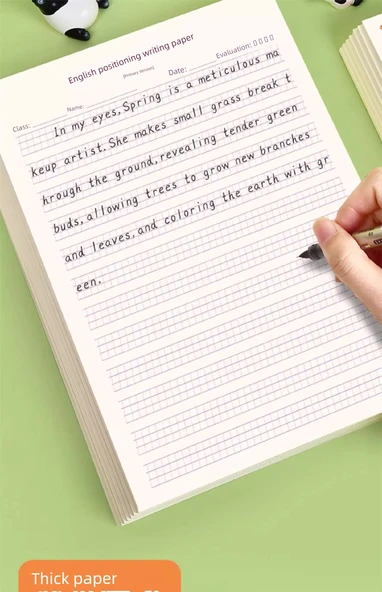 English positioning writing paper
(Primary Version)
Class: Name: Date: Evaluation:
In my eyes,Spring is a meticulous ma
keup artist.She makes small grass break t
hrough the ground,revealing tender green
buds,allowing trees to grow new branches
and leaves,and coloring the earth with gr
een.
Thick paper